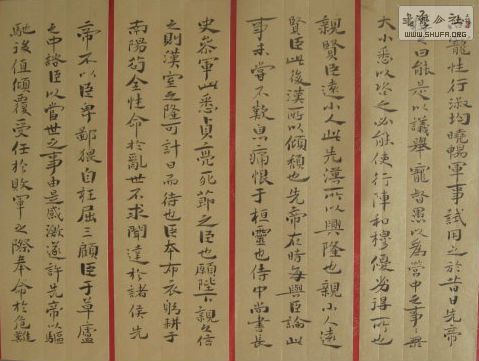 WWW.SHUFA.ORG
寵性行淑均曉暢軍事試用之於昔日先帝
曰能是以議舉寵督愚以為營中之事無
大小悉以咨之必能使行陣和穆優劣得所也
親賢臣遠小人此先漢所以興隆也親小人遠
賢臣此後漢所以傾頹也先帝在時每與臣論此
事未嘗不歎息痛恨于桓靈也侍中尚書長
史參軍此悉貞亮死節之臣也願陛下親之信
之則漢室之隆可計日而待也臣本布衣躬耕于
南陽苟全性命於亂世不求聞達於諸侯先
帝不以臣卑鄙猥自枉屈三顧臣于草廬
之中諮臣以當世之事由是感激遂許先帝以驅
馳後值傾覆受任於敗軍之際奉命於危難